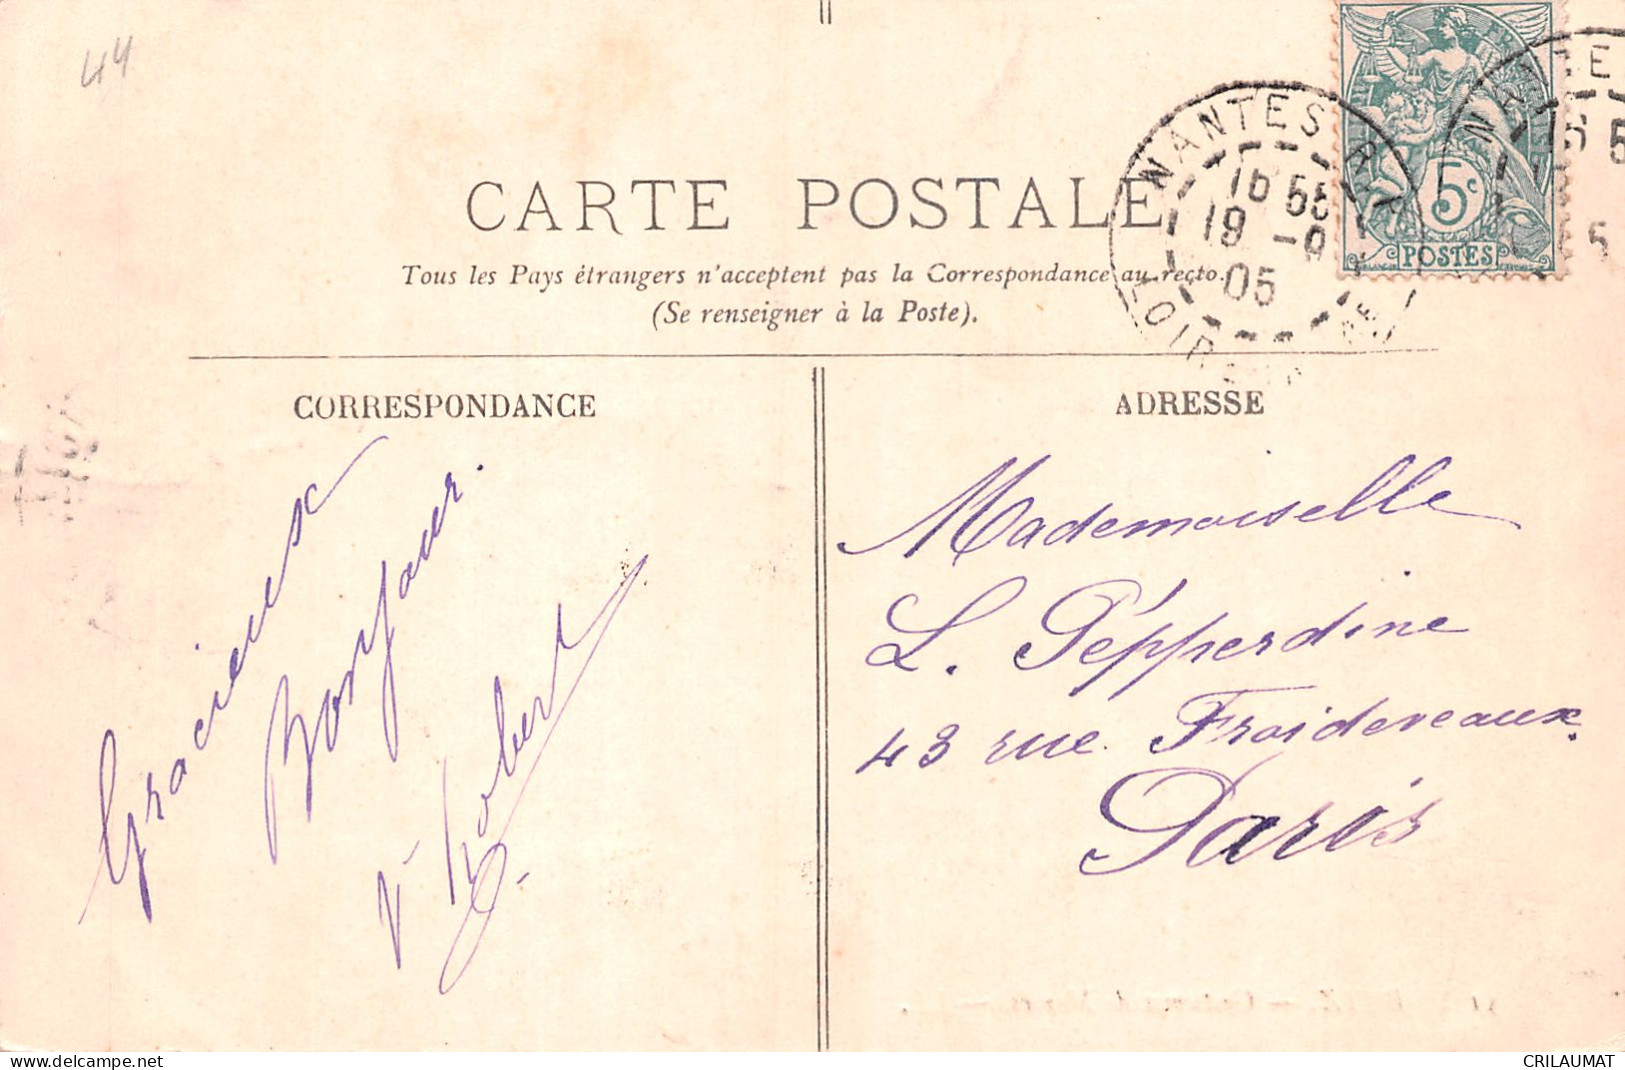 44
CARTE POSTALE
Tous les Pays étrangers n'acceptent pas la Correspondance au recto.
(Se renseigner à la Poste).
NANTES
16 55
19 -9
05
LOIRE
5c
POSTES
CORRESPONDANCE
Gracieux
Bonjour.
V. Robert
ADRESSE
Mademoiselle
L. Pépperdine
43 rue Froideveaux.
Paris
delcampe.net
CRILAUMAT